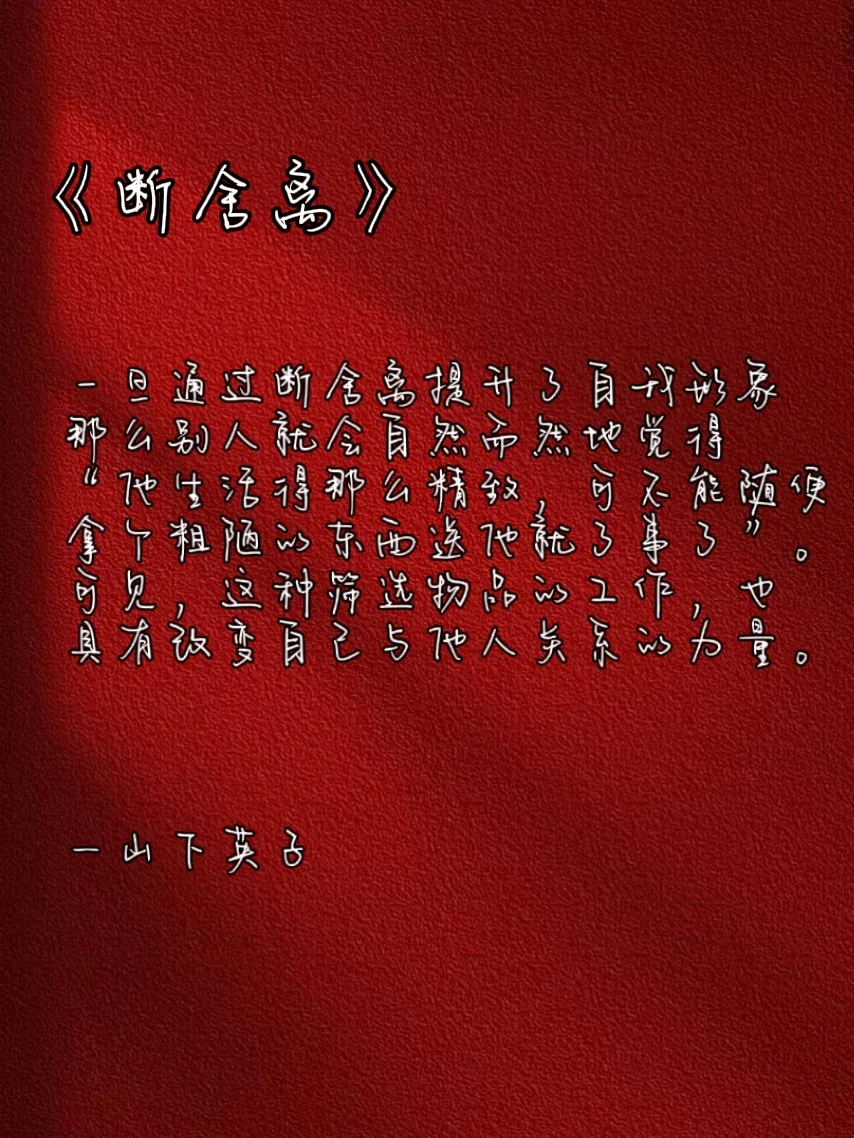 《断舍离》
一旦通过断舍离提升了自我形象
那么别人就会自然而然地觉得
“他生活得那么精致，可不能随便
拿个粗陋的东西送他就了事了”。
可见，这种筛选物品的工作，也
具有改变自己与他人关系的力量。
一山下英子